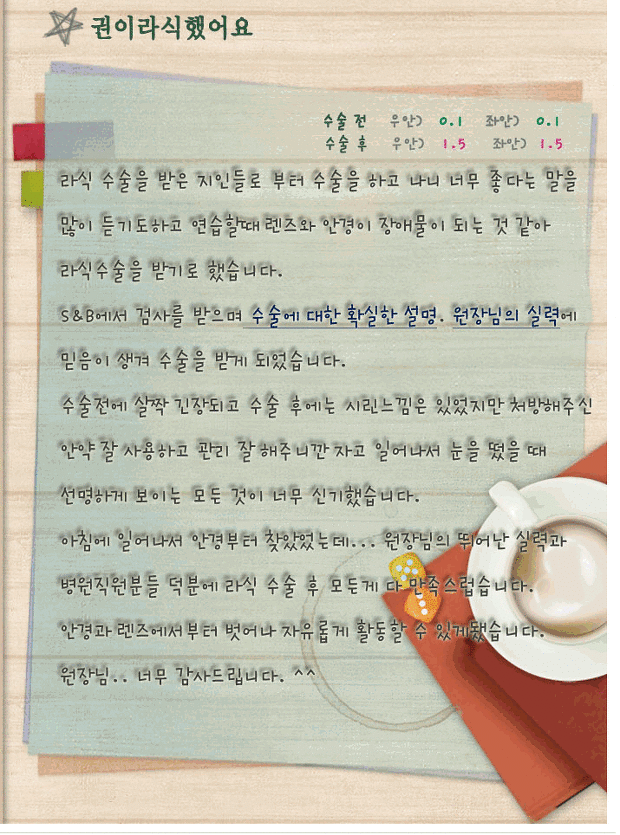 권이라식했어요
수술 전 우안) 0.1 좌안) 0.1
수술 후 우안) 1.5 좌안) 1.5
라식 수술을 받은 지인들로 부터 수술을 하고 나니 너무 좋다는 말을
많이 듣기도하고 연습할때 렌즈와 안경이 장애물이 되는 것 같아
라식수술을 받기로 했습니다.
S&B에서 검사를 받으며 수술에 대한 확실한 설명. 원장님의 실력에
믿음이 생겨 수술을 받게 되었습니다.
수술전에 살짝 긴장되고 수술 후에는 시린느낌은 있었지만 처방해주신
안약 잘 사용하고 관리 잘 해주니깐 자고 일어나서 눈을 떴을 때
선명하게 보이는 모든 것이 너무 신기했습니다.
아침에 일어나서 안경부터 찾았었는데... 원장님의 뛰어난 실력과
병원직원분들 덕분에 라식 수술 후 모든게 다 만족스럽습니다.
안경과 렌즈에서부터 벗어나 자유롭게 활동할 수 있게됐습니다.
원장님.. 너무 감사드립니다. ^^